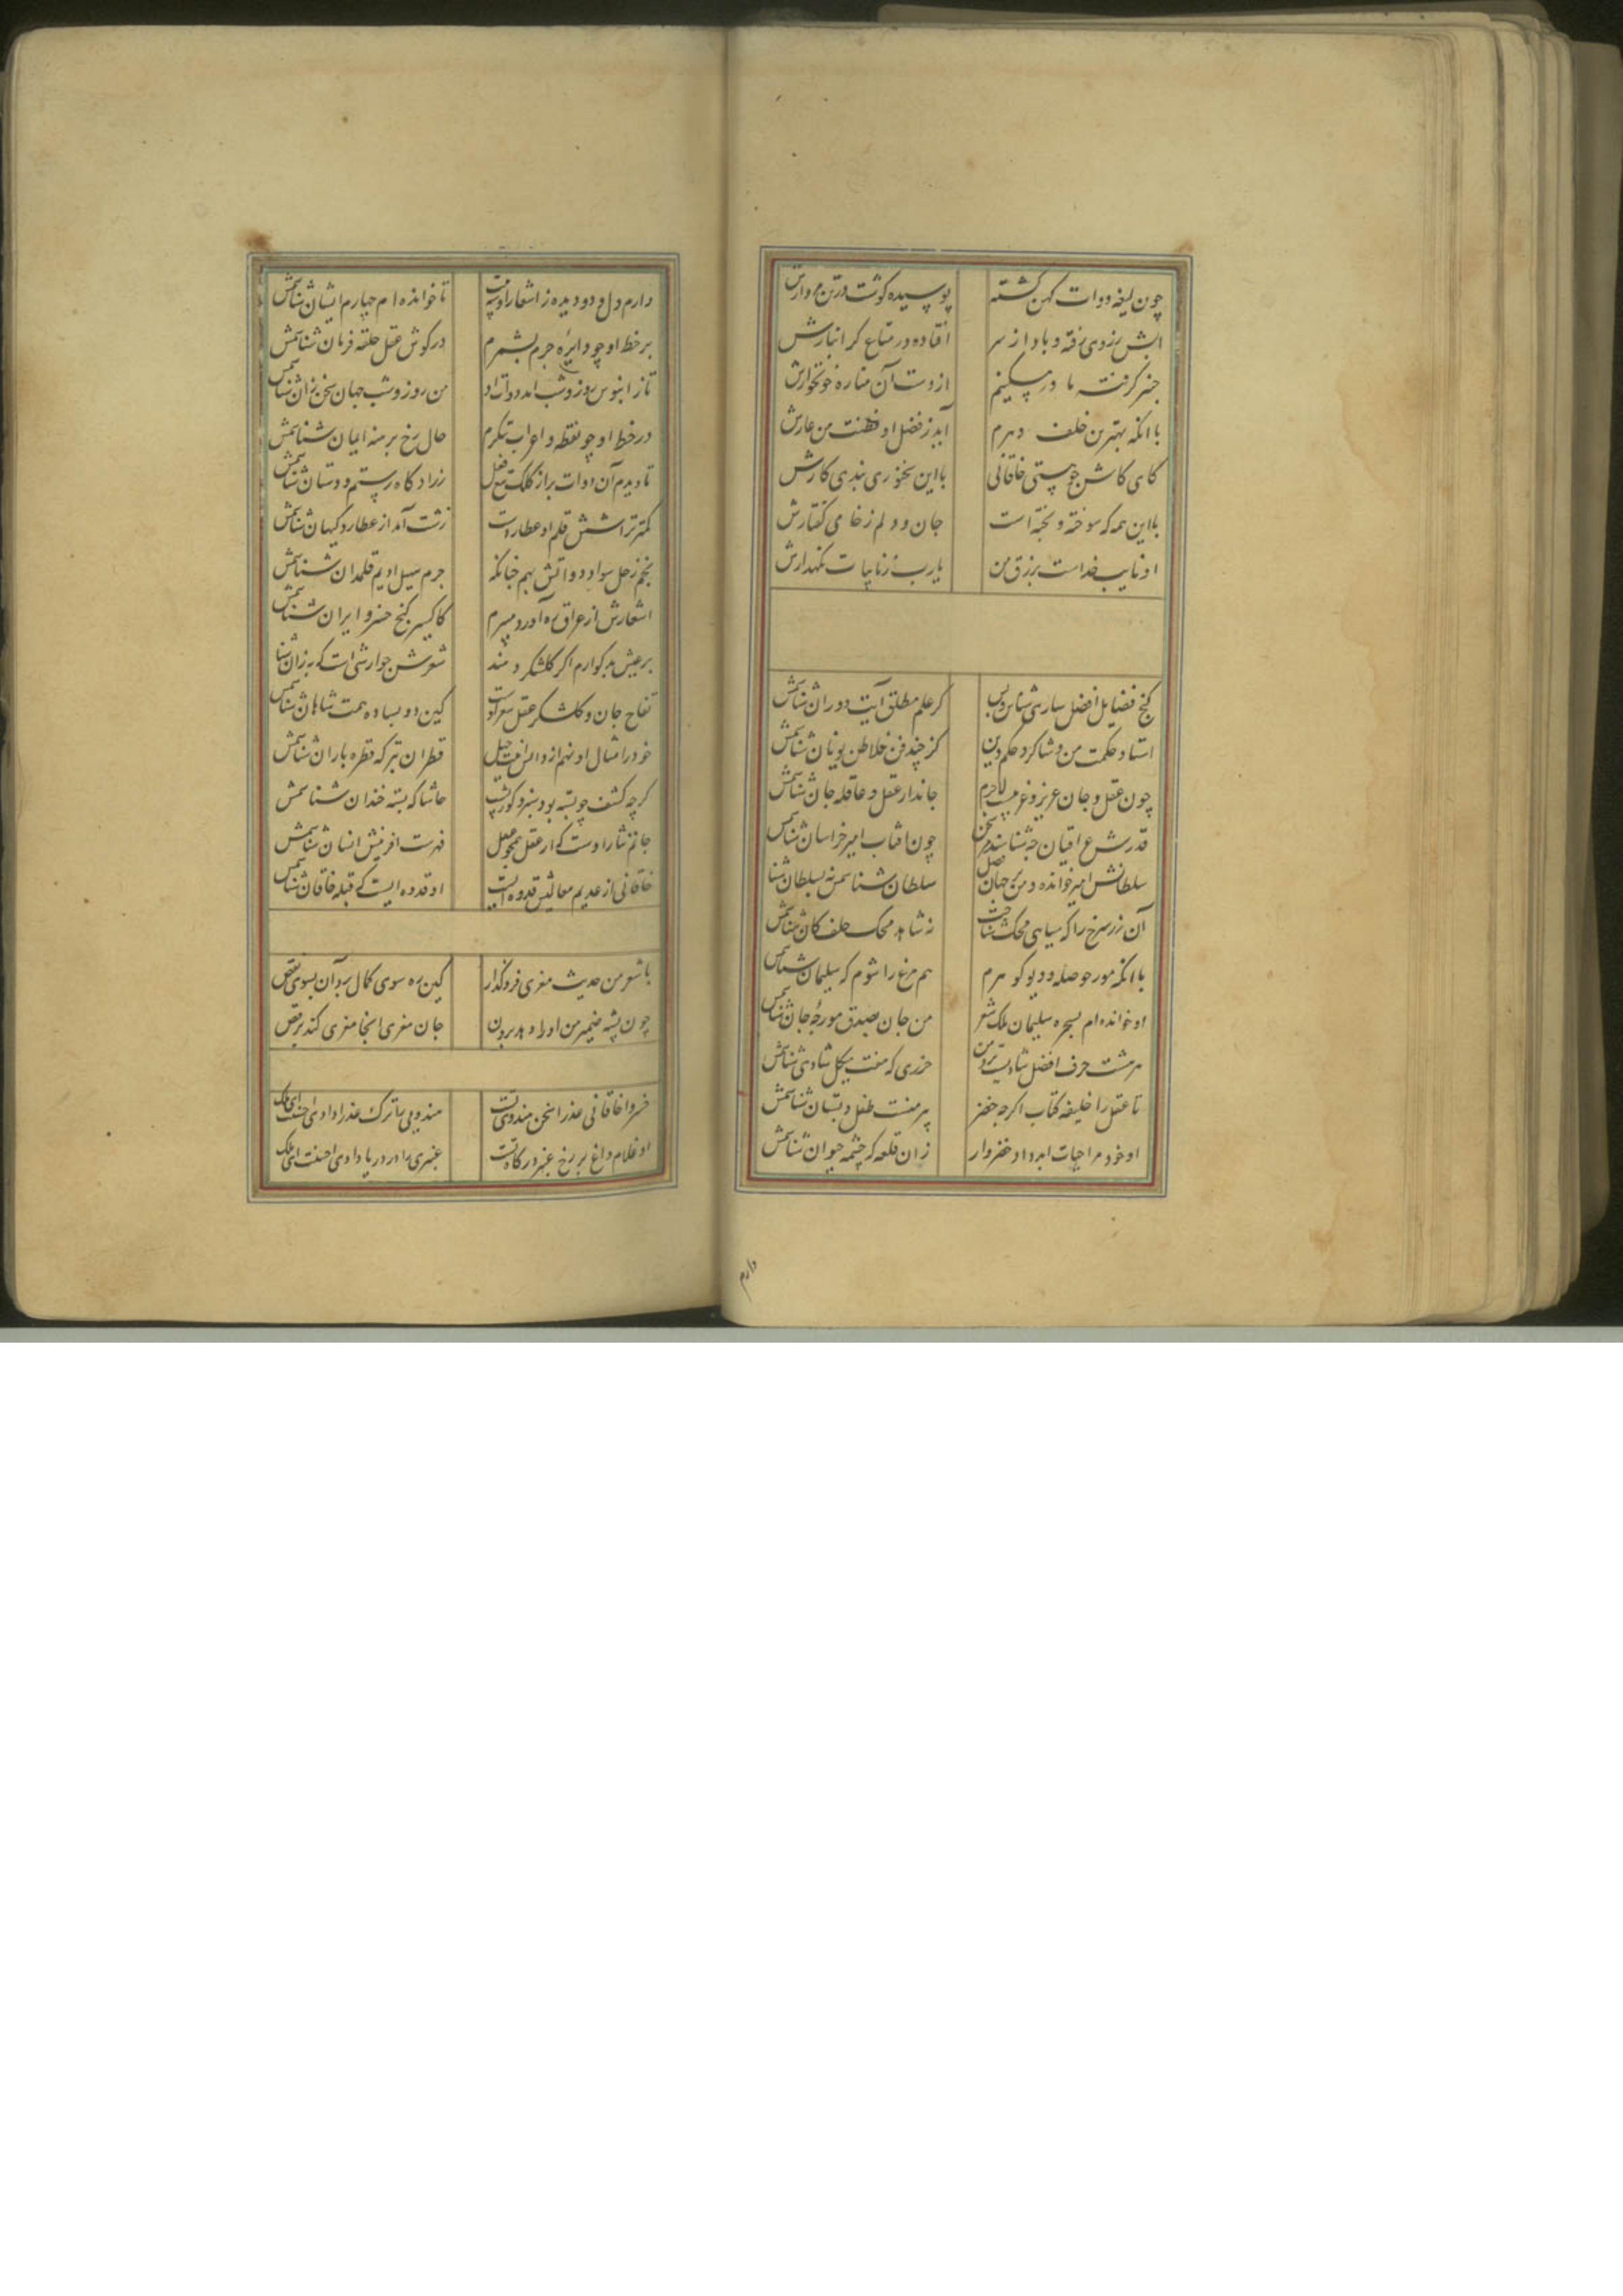 چون لیغه دوات کهن گشته
پوسیده گوشت در تن مردارش
آبش ز روی رفته و باد از سر
افتاده در متاع گرانبارش
از دست آن مناره خونخوارش
با آنکه بهترین خلف دهرم
آید ز فضل و فطنت من عارش
کای کاش جو بستی خاقانی
با این سخنوری بندی کارش
با این همه که سوخته و پخته است
جان و دلم ز خامی گفتارش
او نایب خداست برزق من
یارب ز نایبات نگهدارش
گنج فضایل افضل ساوی شناس و بس
کز علم مطلق آیت دوران شناسمش
استاد حکمت من و شاگرد حکم دین
کز چند فن فلاطن یونان شناسمش
چون عقل و جان عزیز و غریبست لاجرم
جاندار عقل و عاقله جان شناسمش
قدرش عراقیان چه شناسند در سخن
چون افتاب امیر خراسان شناسمش
سلطانش امیر خوانده و من بر جهان فضل
سلطان شناسمش نه بسلطان شناسمش
آن زر سرخ را که سیاهی محک شناخت
نه شاهد محک خلف کان شناسمش
با آنکه مور حوصله و دیو گوهرم
هم مرغ را شوم که سلیمان شناسمش
او خوانده ام بسخره سلیمان ملک شعر
من جان بصدق مورچه جان شناسمش
هر هشت حرف افضل ساویست نزد من
حرزی که هفت هیکل شاهی شناسمش
تا عقل را خلیفه کتاب اگرچه خضر
پیر منست طفل دبستان شناسمش
او خود مرا حیات ابد داد خضروار
زان قلعه که چشمه حیوان شناسمش
دارم
دارم دل و دو دیده ز اشعار او سه بیت
تا خوانده ام چهارم ایشان شناسمش
بر خط او چو دایره جرم بشمرم
در گوش عقل حلقه فرمان شناسمش
تا ز ابنوس روز و شب امد دوات او
من روز و شب جهان سخن زان شناسمش
در خط او چو نقطه و اعراب بنگرم
خال رخ برهنه ایمان شناسمش
تا دیدم آن دوات پر از کلک تیغ فعل
زرادگاه رستم دستان شناسمش
کمتر تراشش قلم او عطارد است
زشت آمد از عطارد کیهان شناسمش
نجم زحل سواد دواتش نهم چنانکه
جرم سهیل ادیم قلمدان شناسمش
اشعارش از عراق ره آورد میبرم
کاکسیر گنج خسرو ایران شناسمش
بر عیش بدگوارم اگر گلشکر دهند
شعرش جوارشی است که به زان شناسمش
تفاح جان و گلشکر عقل شعر اوست
کین دو بساوه همت شاهان شناسمش
خود را مثال او نهم از دانش اینت جهل
قطران تر که قطره باران شناسمش
گر چه کشف چو پسته بود سبز و گوژ پشت
حاشا که پسته خندان شناسمش
جانم نثار اوست که از عقل همچو عقل
فهرست آفرینش انسان شناسمش
خاقانی از عدیم معالیش قدوه ایست
او قدوه ایست که قبله خاقان شناسمش
با شعر من حدیث معزی فرو گذار
کین ره سوی کمال برد آن بسوی نقص
چون پشه ضمیر من او را دهد برون
جان معزی اینجا معزی کند برقص
خسروا خاقانی عذرا سخن هندوی تست
هندویی را ترک عذرا دادی احسنت ای ملک
او غلام داغ بر رخ عنبر درگاه تست
عنبری را در دریا دادی احسنت ای ملک